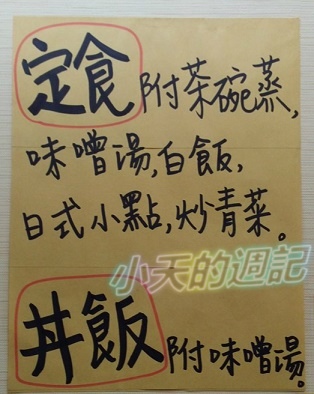 定食附茶碗蒸,
味噌湯,白飯,
日式小點,炒青菜。
小天的週記
丼飯附味噌湯。